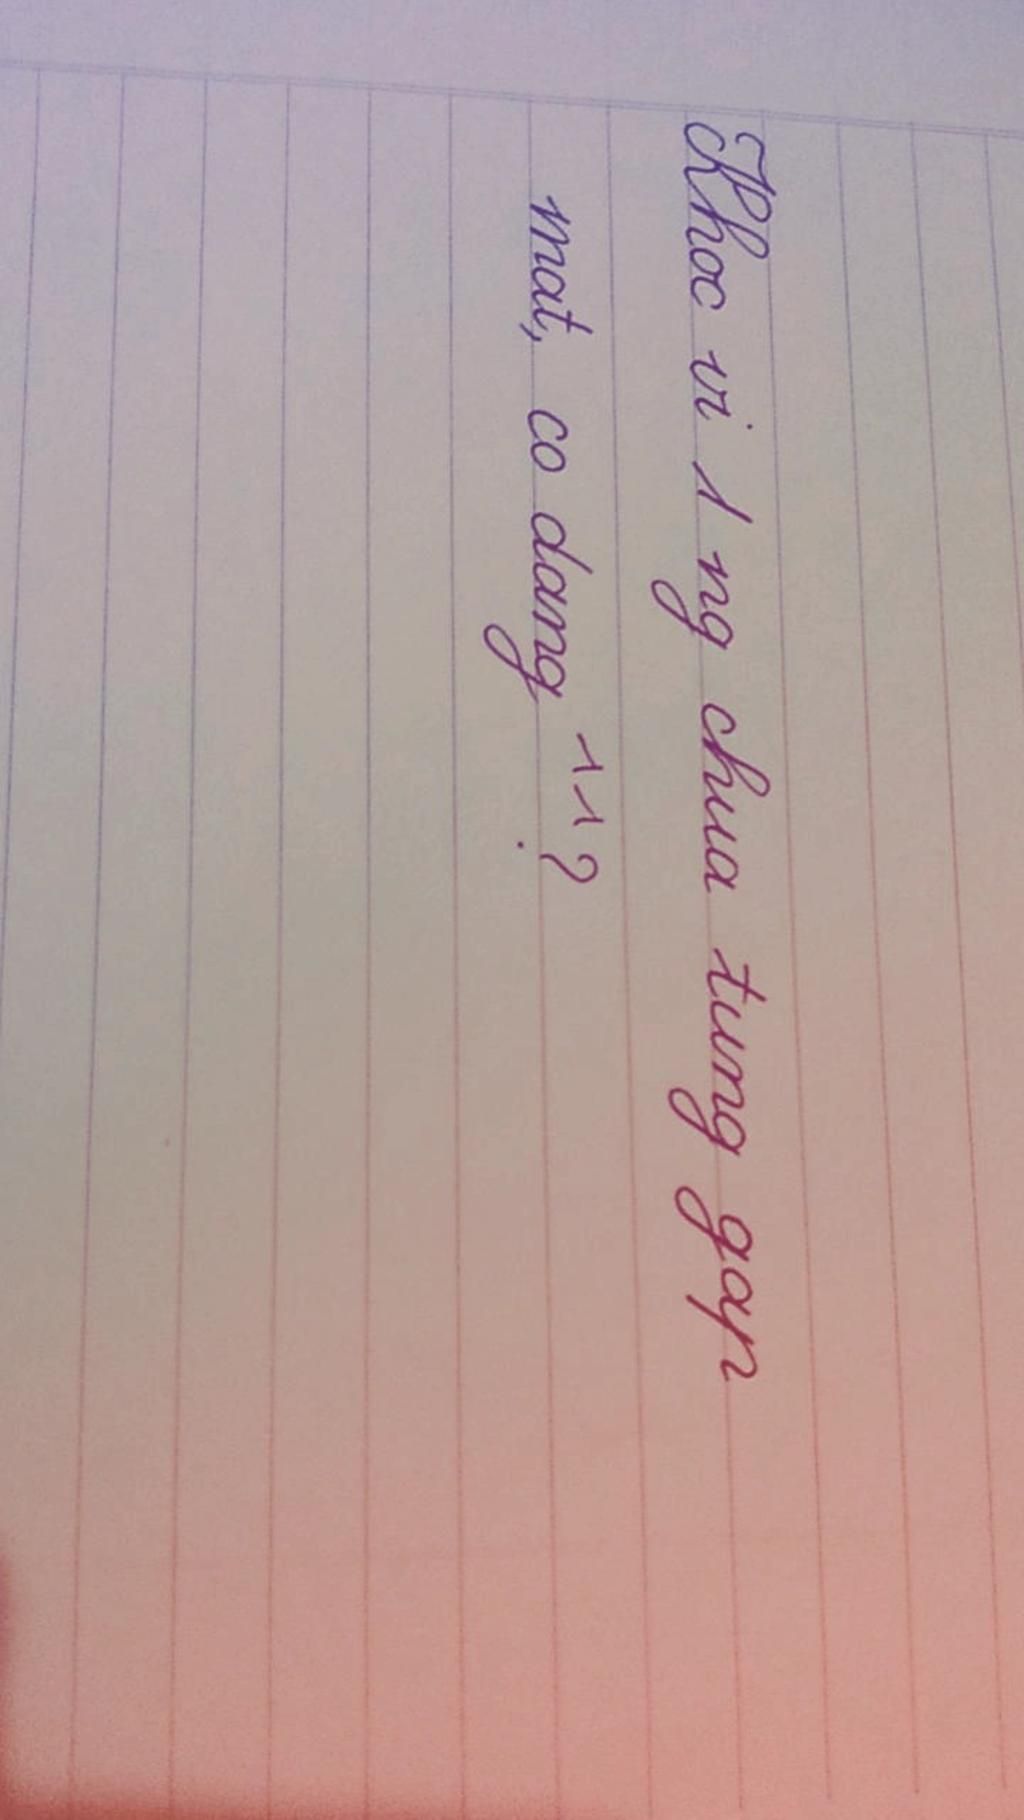 Khoc vi 1 ng chua tung gap
mat, co dang ^^?